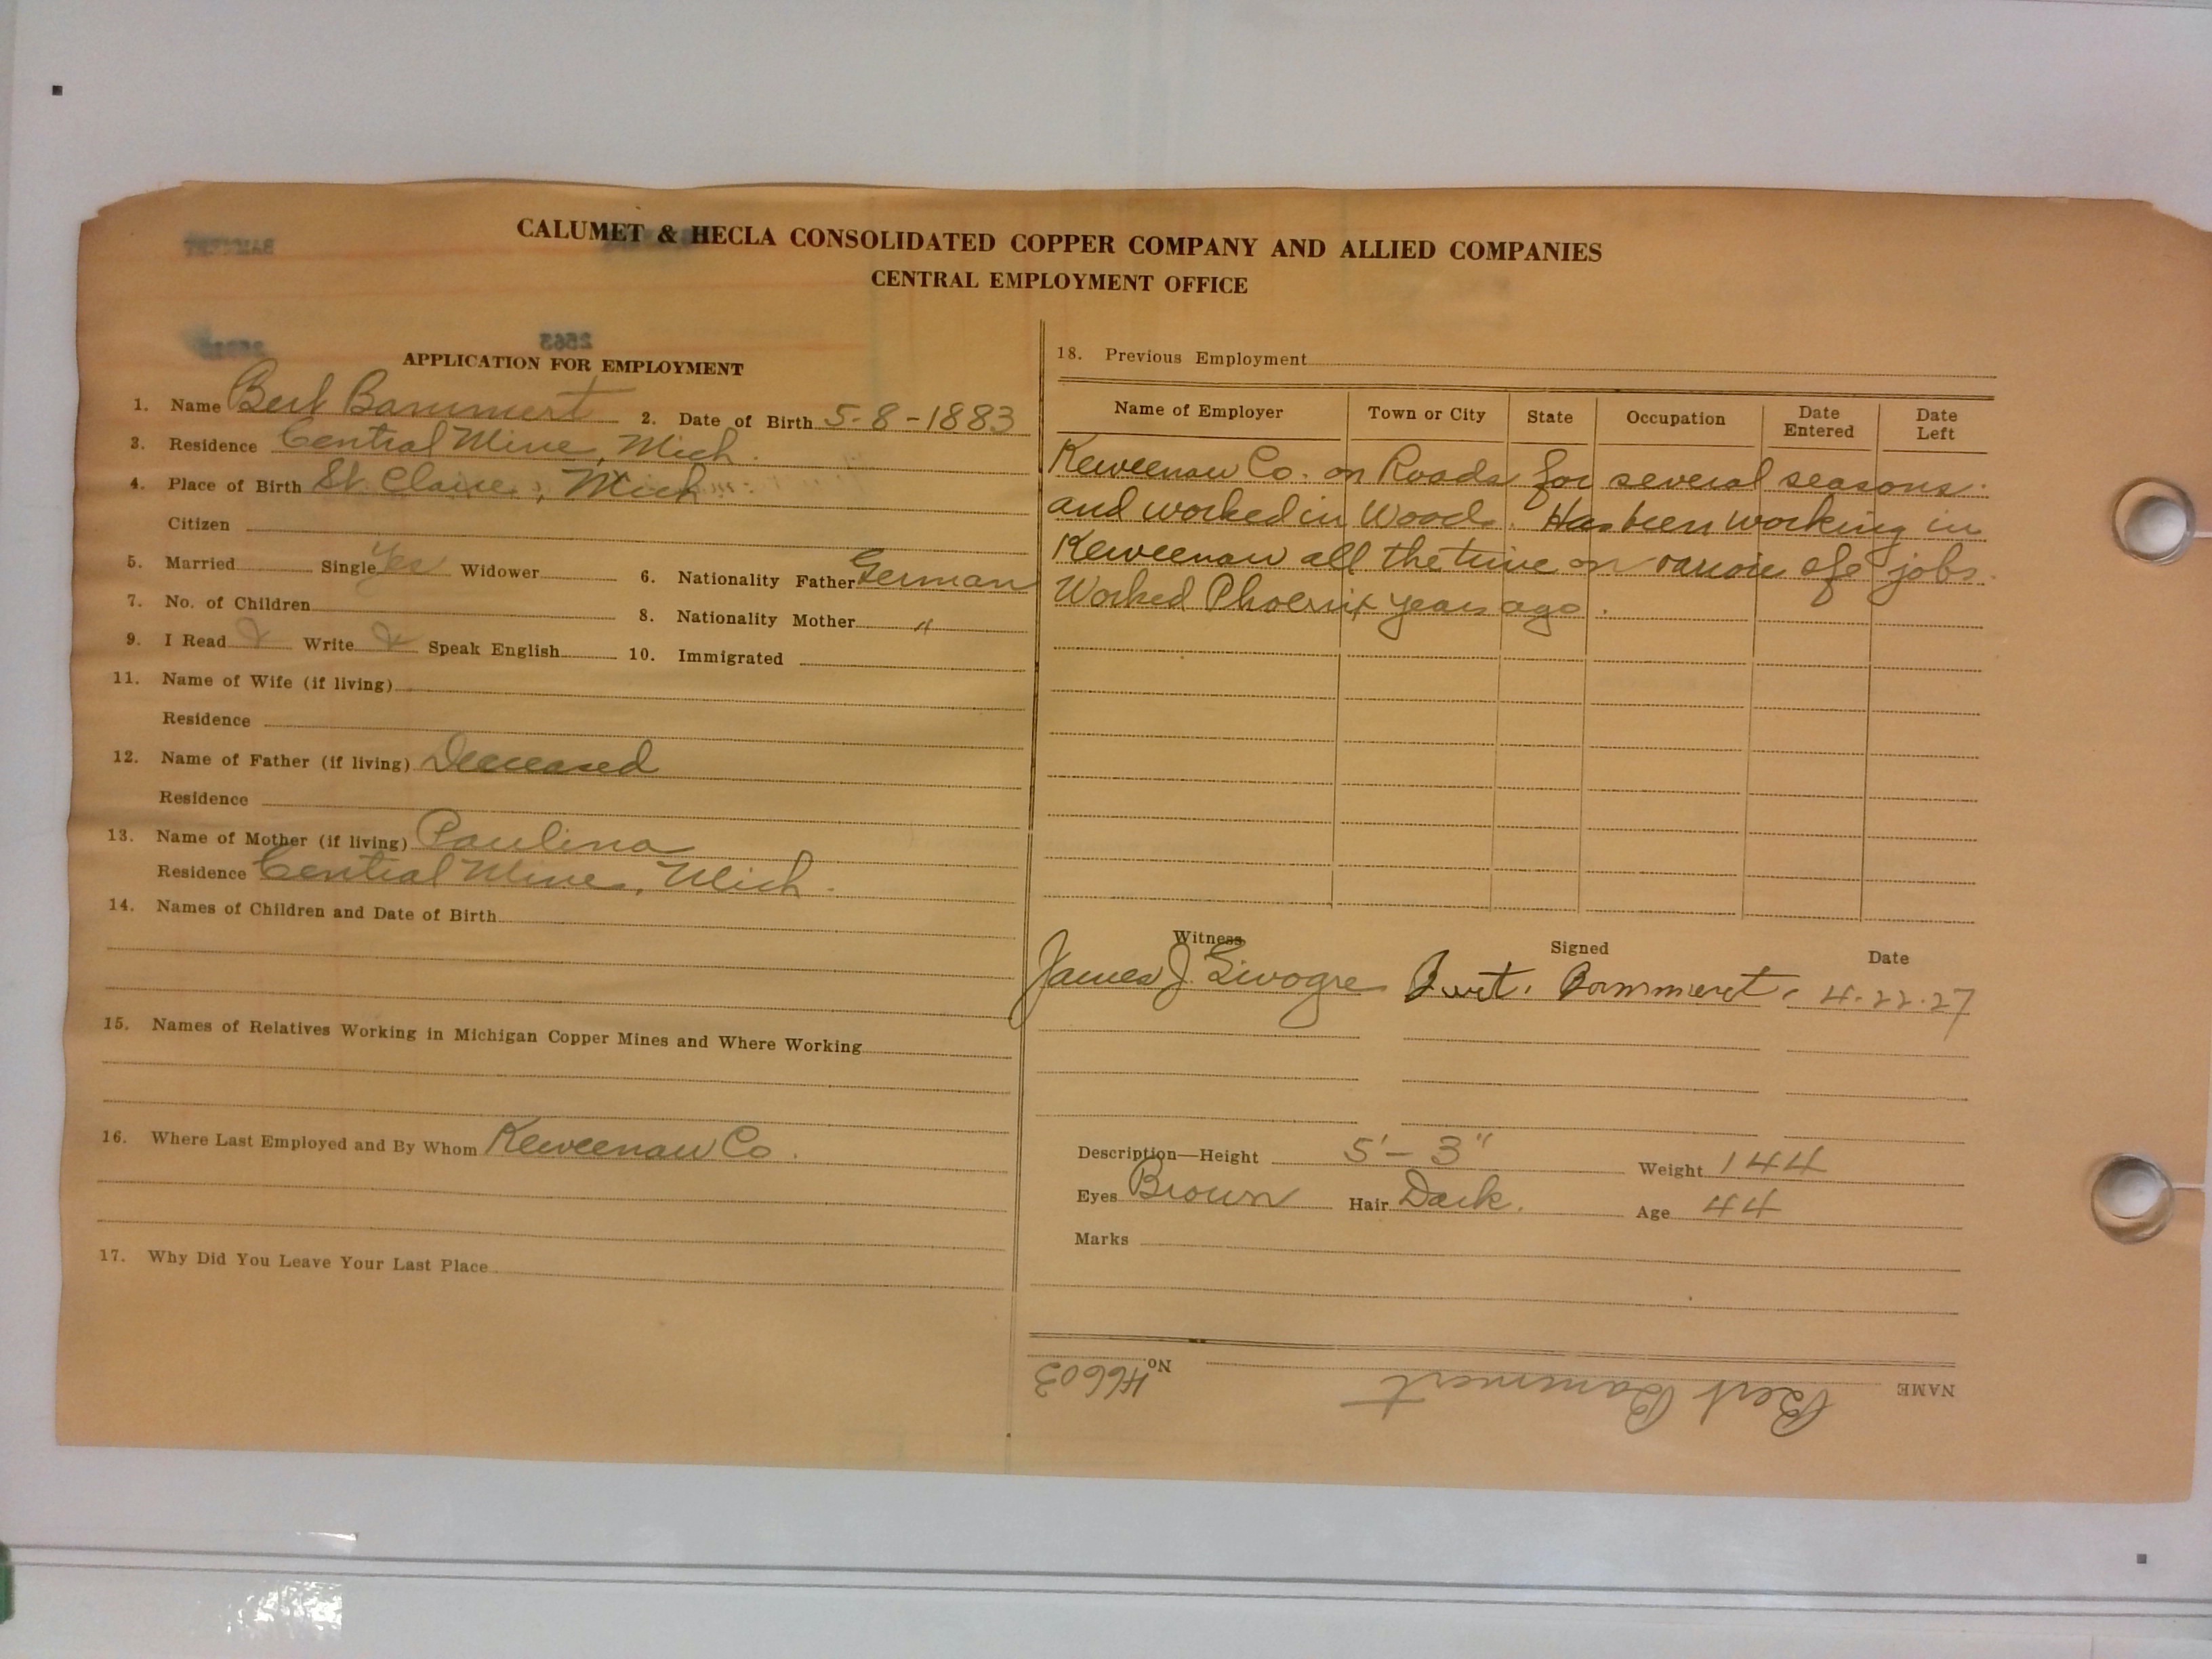 CALUMET & HECLA CONSOLIDATED COPPER COMPANY AND ALLIED COMPANIES
CENTRAL EMPLOYMENT OFFICE
2563
APPLICATION FOR EMPLOYMENT
1. Name Bert Bammert 2. Date of Birth 5-8-1883
3. Residence Central Mine, Mich.
4. Place of Birth St. Claire, Mich
Citizen
5. Married Single Yes Widower 6. Nationality Father German
7. No. of Children 8. Nationality Mother "
9. I Read Write Speak English 10. Immigrated
11. Name of Wife (if living)
Residence
12. Name of Father (if living) Deceased
Residence
13. Name of Mother (if living) Paulina
Residence Central Mine, Mich.
14. Names of Children and Date of Birth
15. Names of Relatives Working in Michigan Copper Mines and Where Working
16. Where Last Employed and By Whom Keweenaw Co.
17. Why Did You Leave Your Last Place
18. Previous Employment
Name of Employer Town or City State Occupation Date Entered Date Left
Keweenaw Co. on Roads for several seasons.
and worked in Woods. Has been working in
Keweenaw all the time on jobs.
Worked Phoenix years ago.
Witness Signed Date
James J. Bert. Bammert. 4-22-27
Description—Height 5'-3" Weight 144
Eyes Brown Hair Dark. Age 44
Marks
NAME Bert Bammert No. 46603